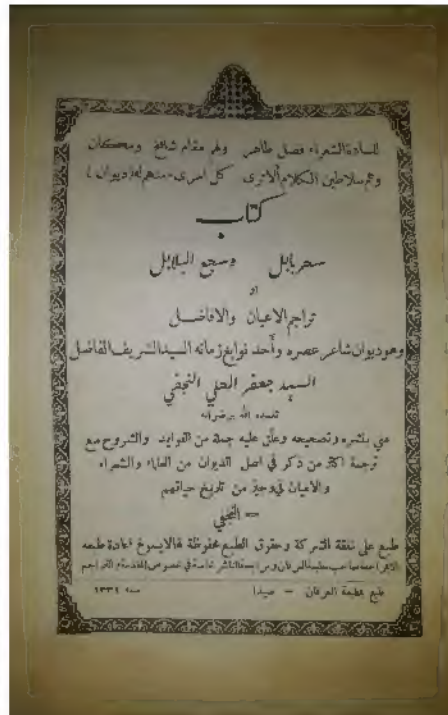 للسادة الشعراء فضل ظاهر ولهم مقام شامخ ومكان
وهم سلاطين الكلام ألا ترى كل امرى منهم له ديوان
كتاب
سحر بابل وسجع البلابل
او
تراجم الاعيان والافاضل
وهو ديوان شاعر عصره وأحد نوابغ زمانه السيد الشريف الفاضل
السيد جعفر الحلي النجفي
تغمده الله برضوانه
عني بنشره وتصحيحه وعلق عليه جملة من الفوايد والشروح مع
ترجمة اكثر من ذكر في اصل الديوان من العلماء والشعراء
والاعيان في وجيز من تاريخ حياتهم
النجفي
طبع على نفقة الشركة وحقوق الطبع محفوظة فلا يسوغ اعادة طبعه
طبع بمطبعة العرفان – صيدا سنة ١٣٣١